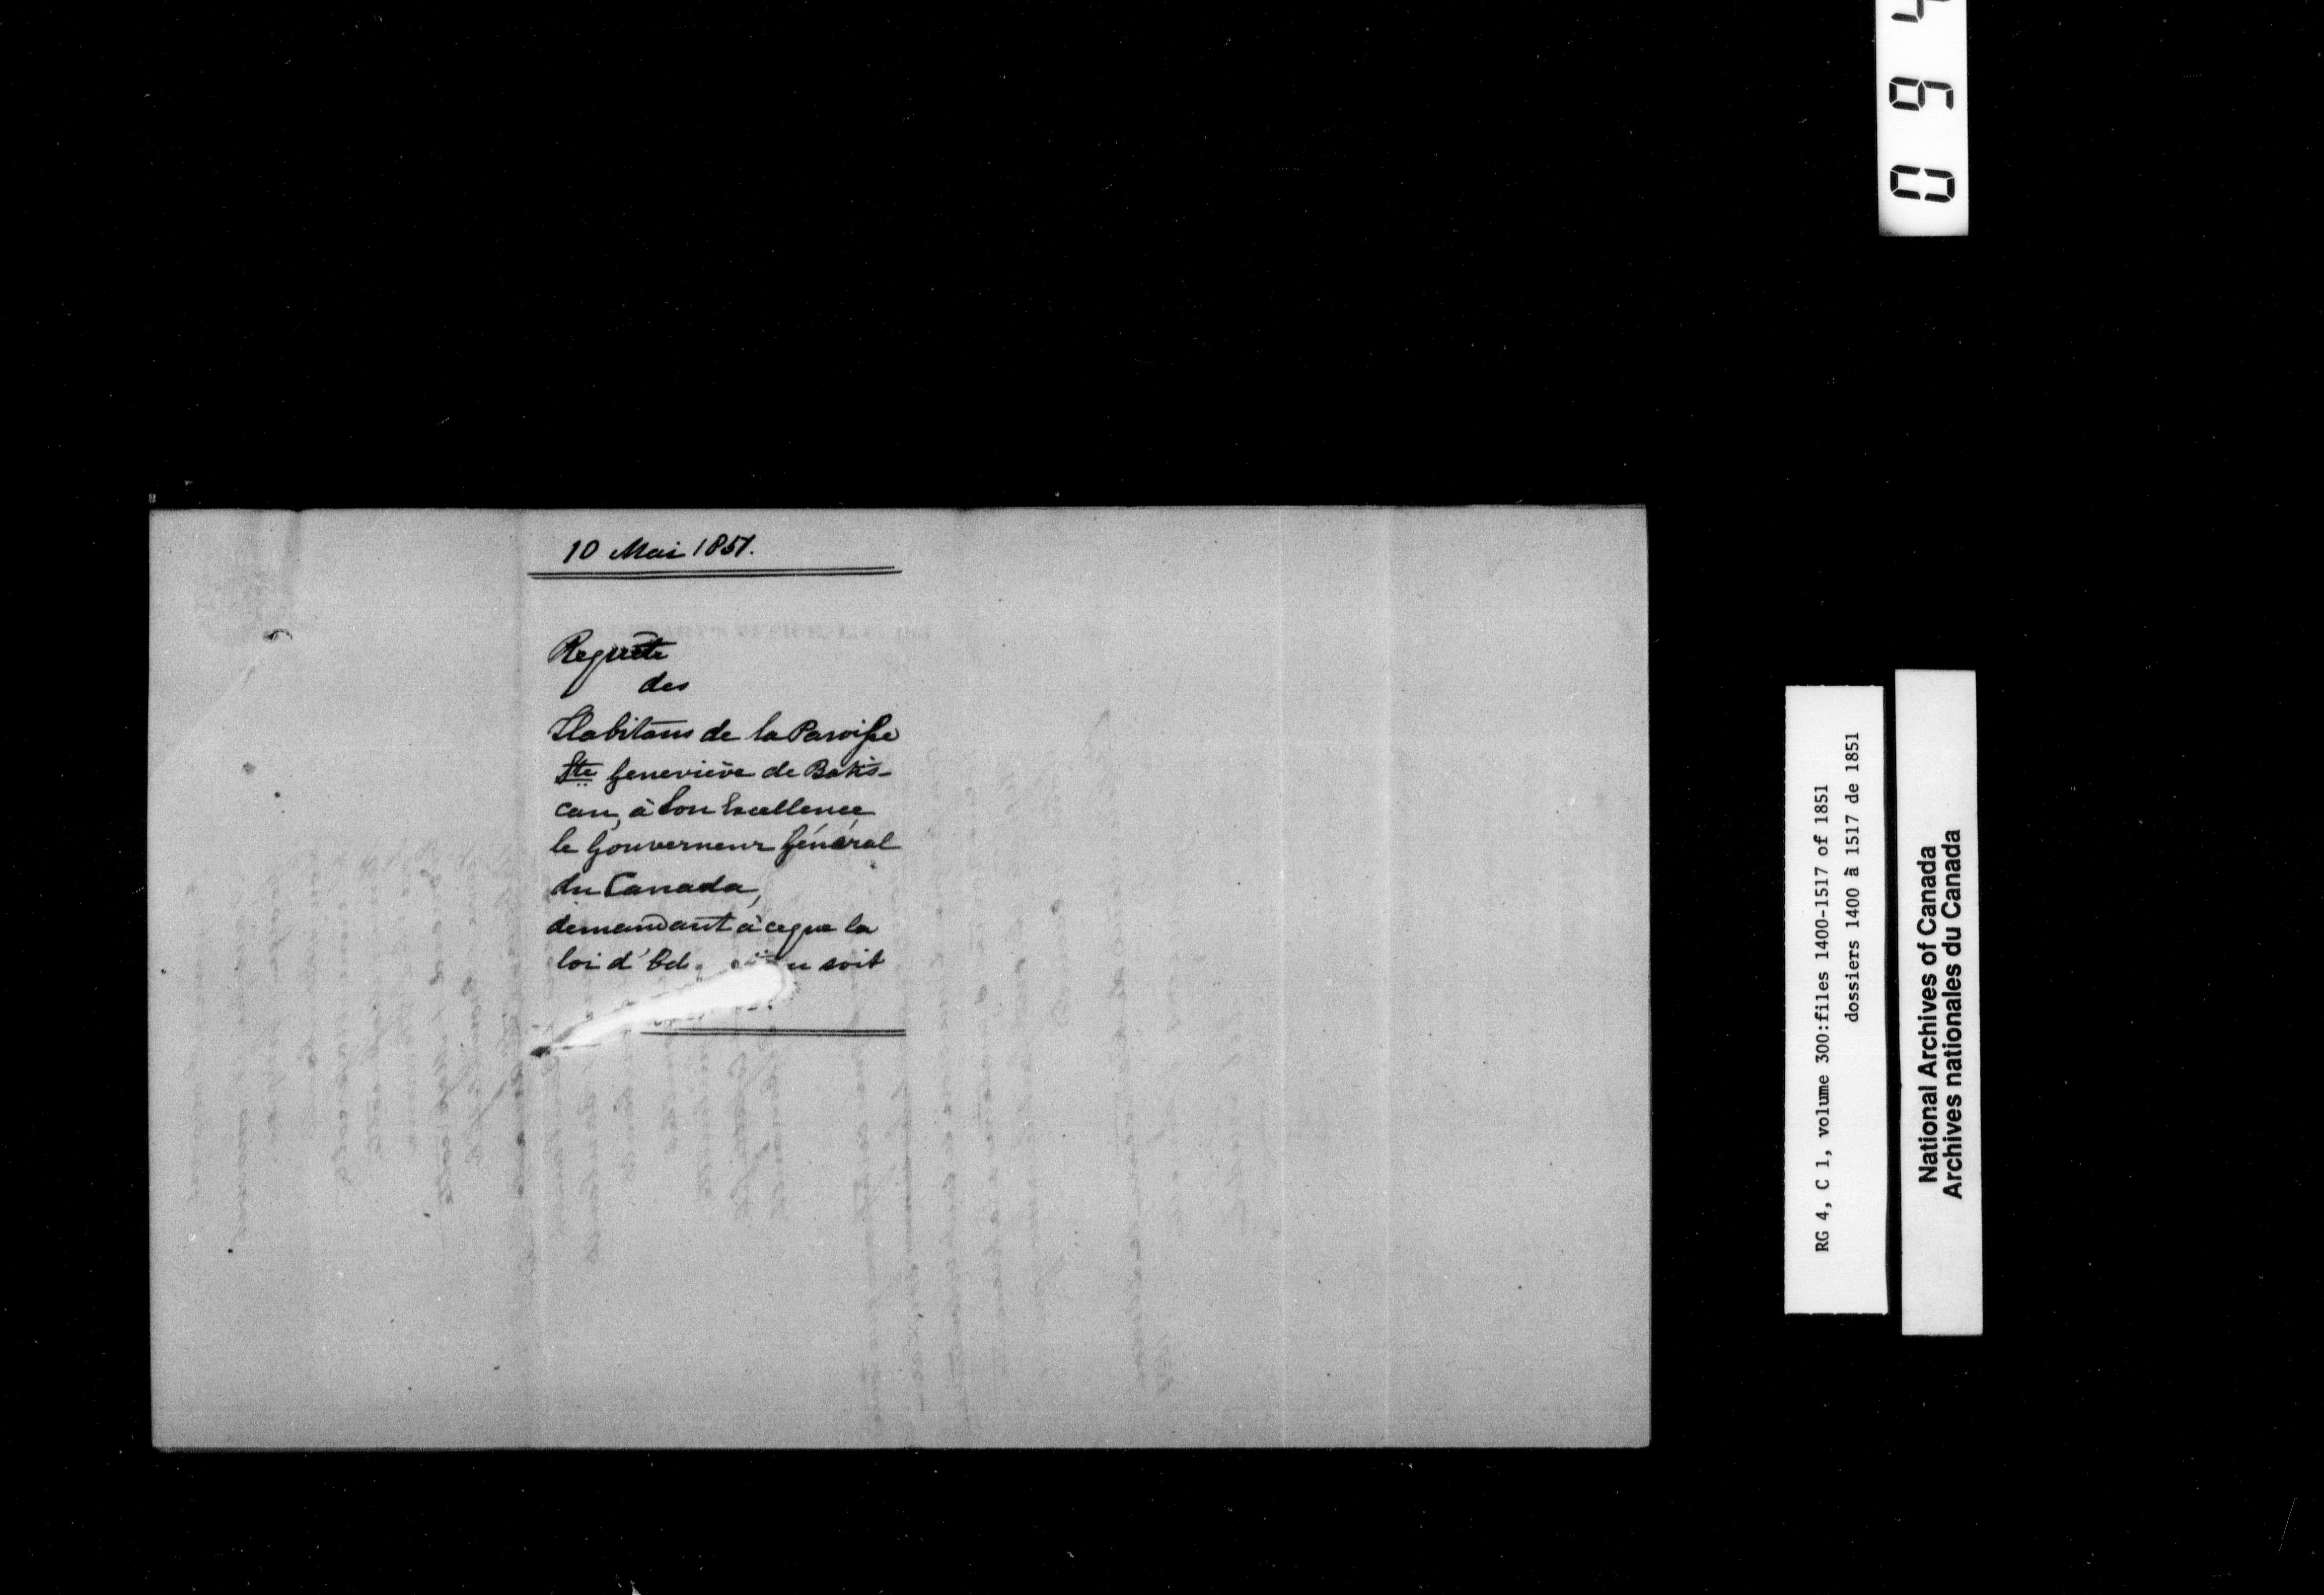 10 Mai 1851.
Requête
des
Habitans de la Paroisse
Ste Geneviève de Batis-
can, à Son Excellence
le Gouverneur Général
du Canada,
demandant à ce que la
loi d'Éd soit
RG 4, C 1, volume 300:files 1400-1517 of 1851
dossiers 1400 à 1517 de 1851
National Archives of Canada
Archives nationales du Canada
0 9 4